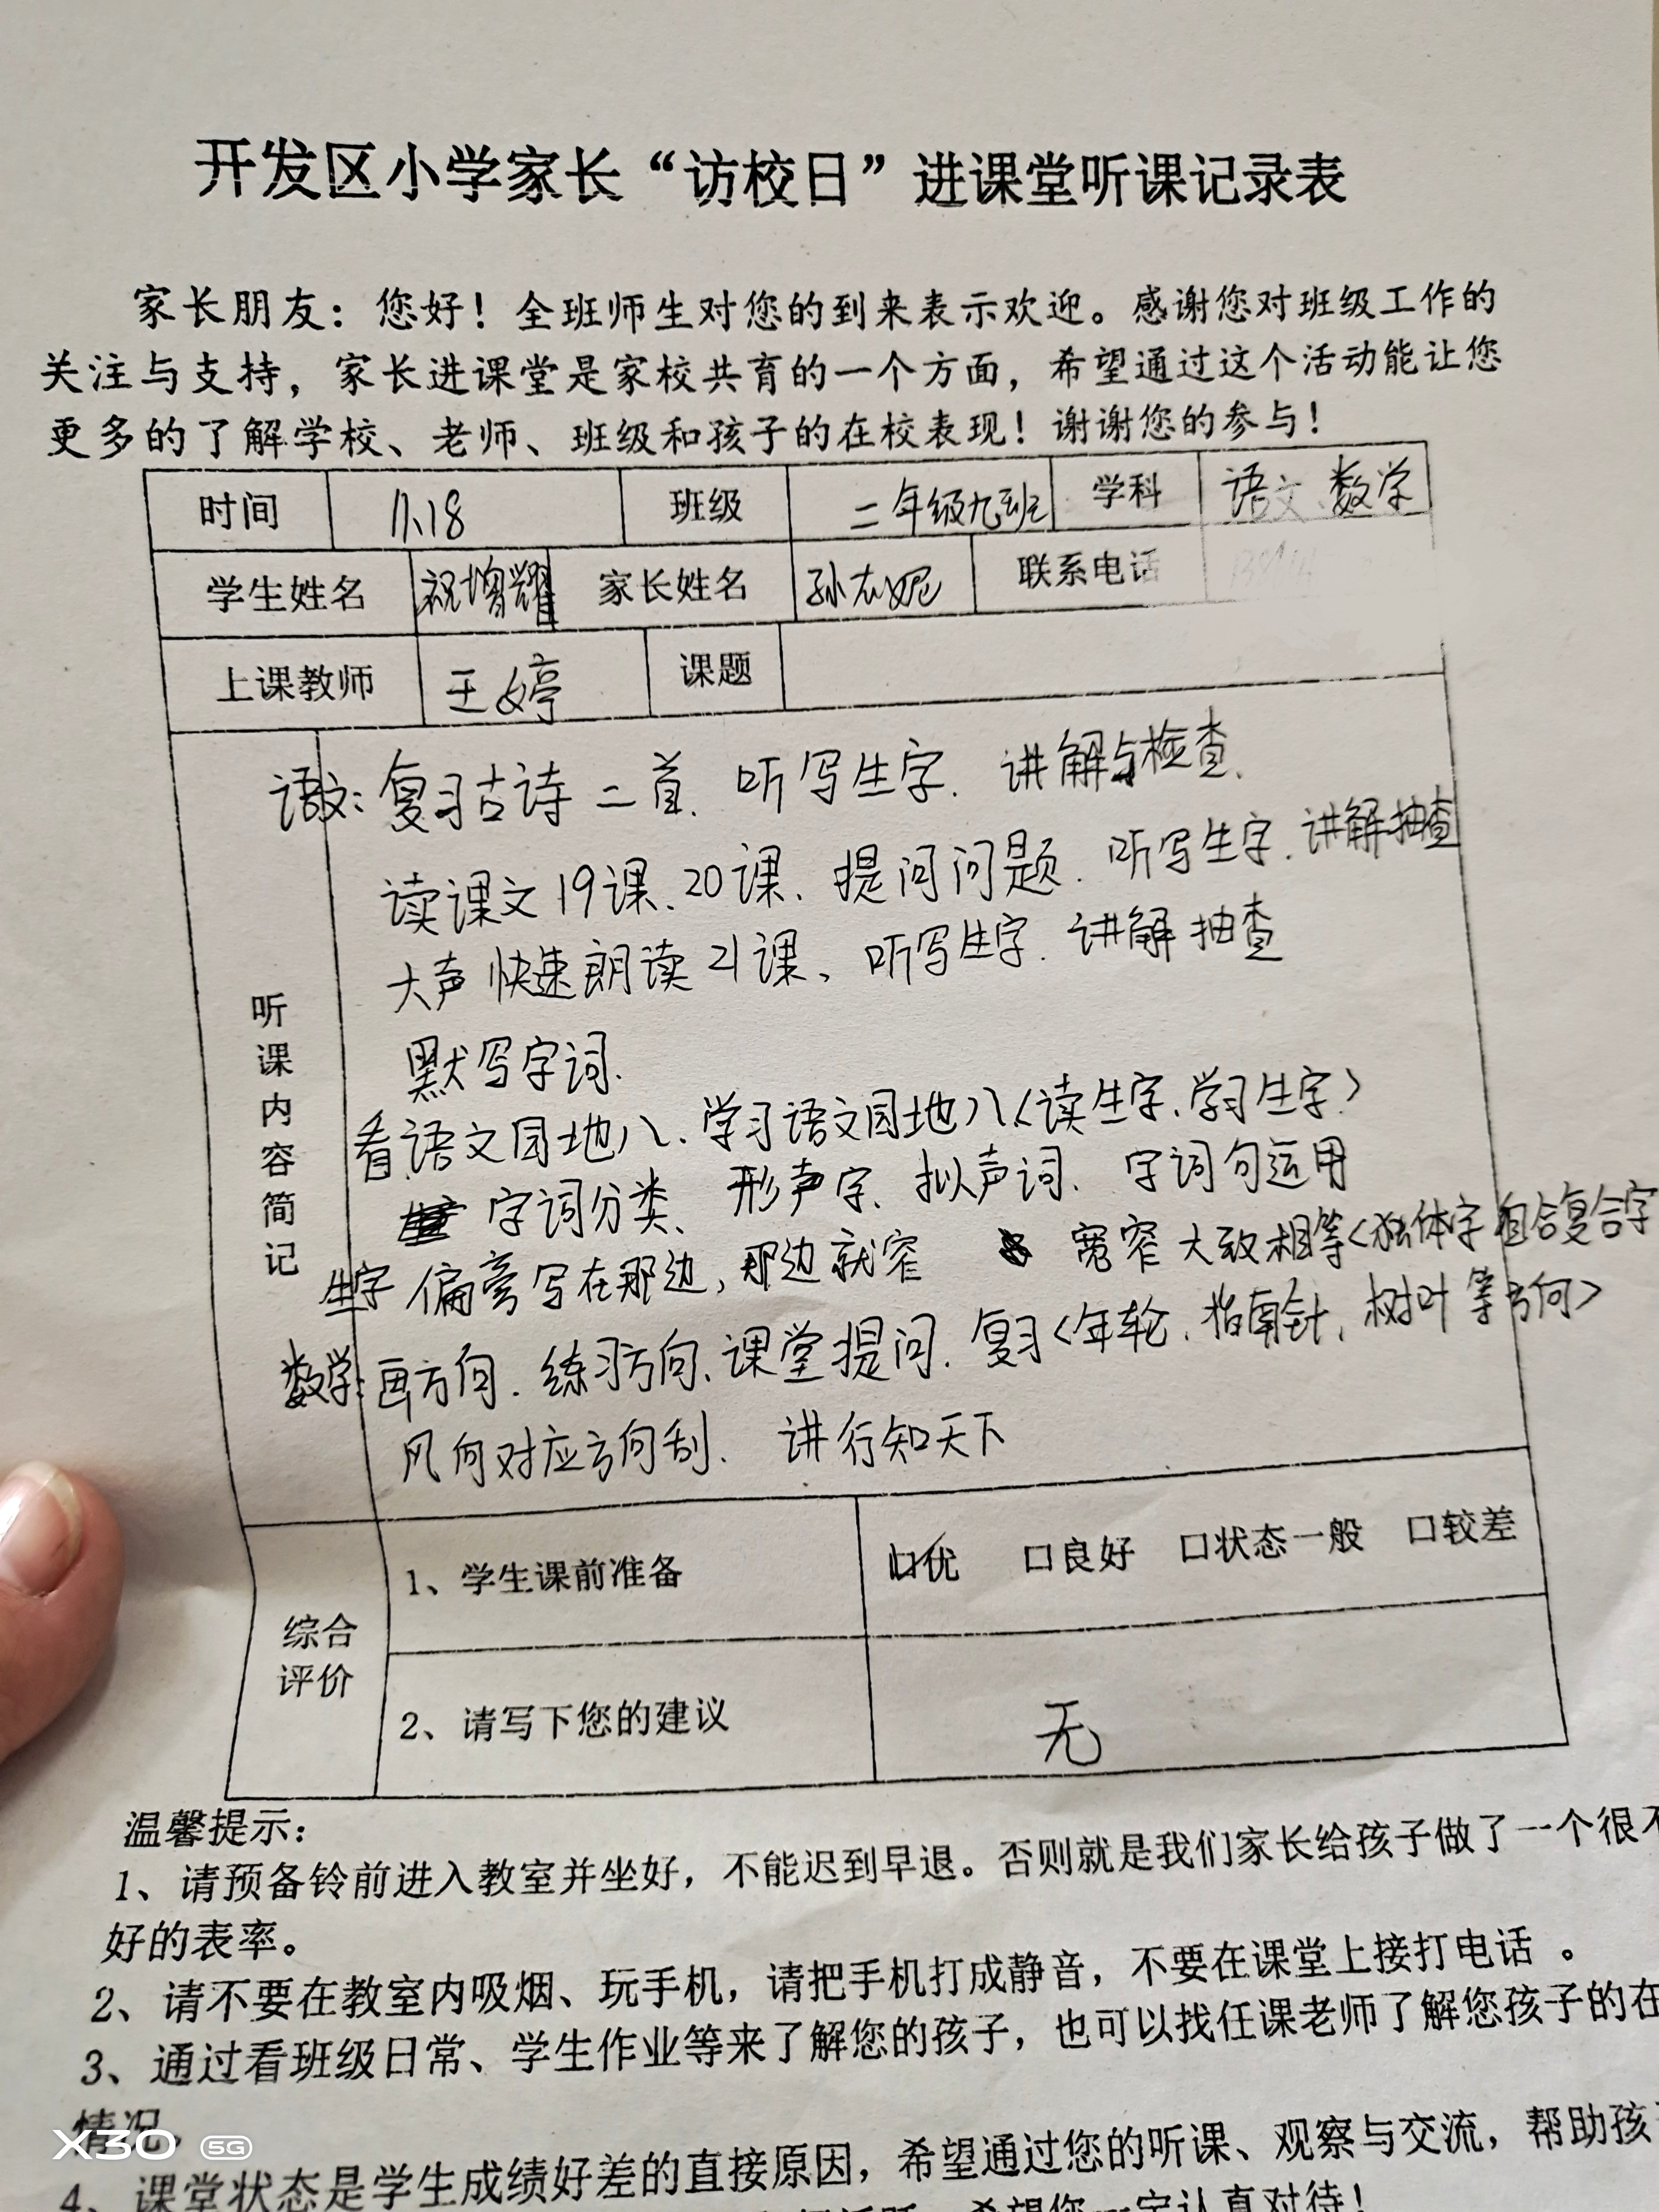 开发区小学家长“访校日”进课堂听课记录表
家长朋友：您好！全班师生对您的到来表示欢迎。感谢您对班级工作的
关注与支持，家长进课堂是家校共育的一个方面，希望通过这个活动能让您
更多的了解学校、老师、班级和孩子的在校表现！谢谢您的参与！
时间 11.18 班级 二年级九班 学科 语文、数学
学生姓名 祝增耀 家长姓名 孙志妮 联系电话
上课教师 王婷 课题
听课内容简记
语文：复习古诗二首、听写生字、讲解与检查、
读课文19课、20课、提问问题、听写生字、讲解抽查
大声快速朗读21课、听写生字、讲解抽查
默写字词、
看语文园地八、学习语文园地八<读生字、学习生字>
字词分类、形声字、拟声词、字词句运用
生字偏旁写在那边，那边就窄 宽窄大致相等<独体字组合复合字
数学：画方向、练习方向、课堂提问、复习<年轮、指南针、树叶等方向>
风向对应方向刮、讲行知天下
综合评价
1、学生课前准备 口优 口良好 口状态一般 口较差
2、请写下您的建议 无
温馨提示：
1、请预备铃前进入教室并坐好，不能迟到早退。否则就是我们家长给孩子做了一个很不
好的表率。
2、请不要在教室内吸烟、玩手机，请把手机打成静音，不要在课堂上接打电话 。
3、通过看班级日常、学生作业等来了解您的孩子，也可以找任课老师了解您孩子的在
情况。
4、课堂状态是学生成绩好差的直接原因，希望通过您的听课、观察与交流，帮助孩
希望您一定认真对待！
X30 5G